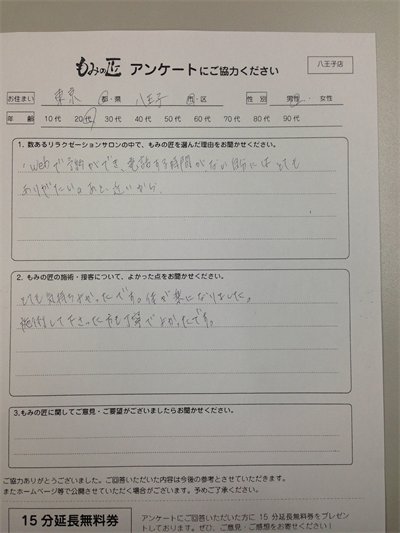 もみの匠 アンケートにご協力ください
八王子店
お住まい 東京 都・県 八王子 市・区 性別 男性・女性
年齢 10代 20代 30代 40代 50代 60代 70代 80代 90代
1. 数あるリラクゼーションサロンの中で、もみの匠を選んだ理由をお聞かせください。
・Webで予約ができ、電話する時間がない時にはとても
ありがたい。あと、近いから。
2. もみの匠の施術・接客について、よかった点をお聞かせください。
とても気持ちよかったです。体が楽になりました。
施術して下さった方も丁寧でよかったです。
3.もみの匠に関してご意見・ご要望がございましたらお聞かせください。
ご協力ありがとうございました。ご回答いただいた内容は今後の参考とさせていただきます。
またホームページ等で公開させていただく場合がございます。予めご了承ください。
15分延長無料券
アンケートにご回答いただいた方に 15 分延長無料券をプレゼン
トしております。ぜひ、ご意見・ご感想をお寄せください！